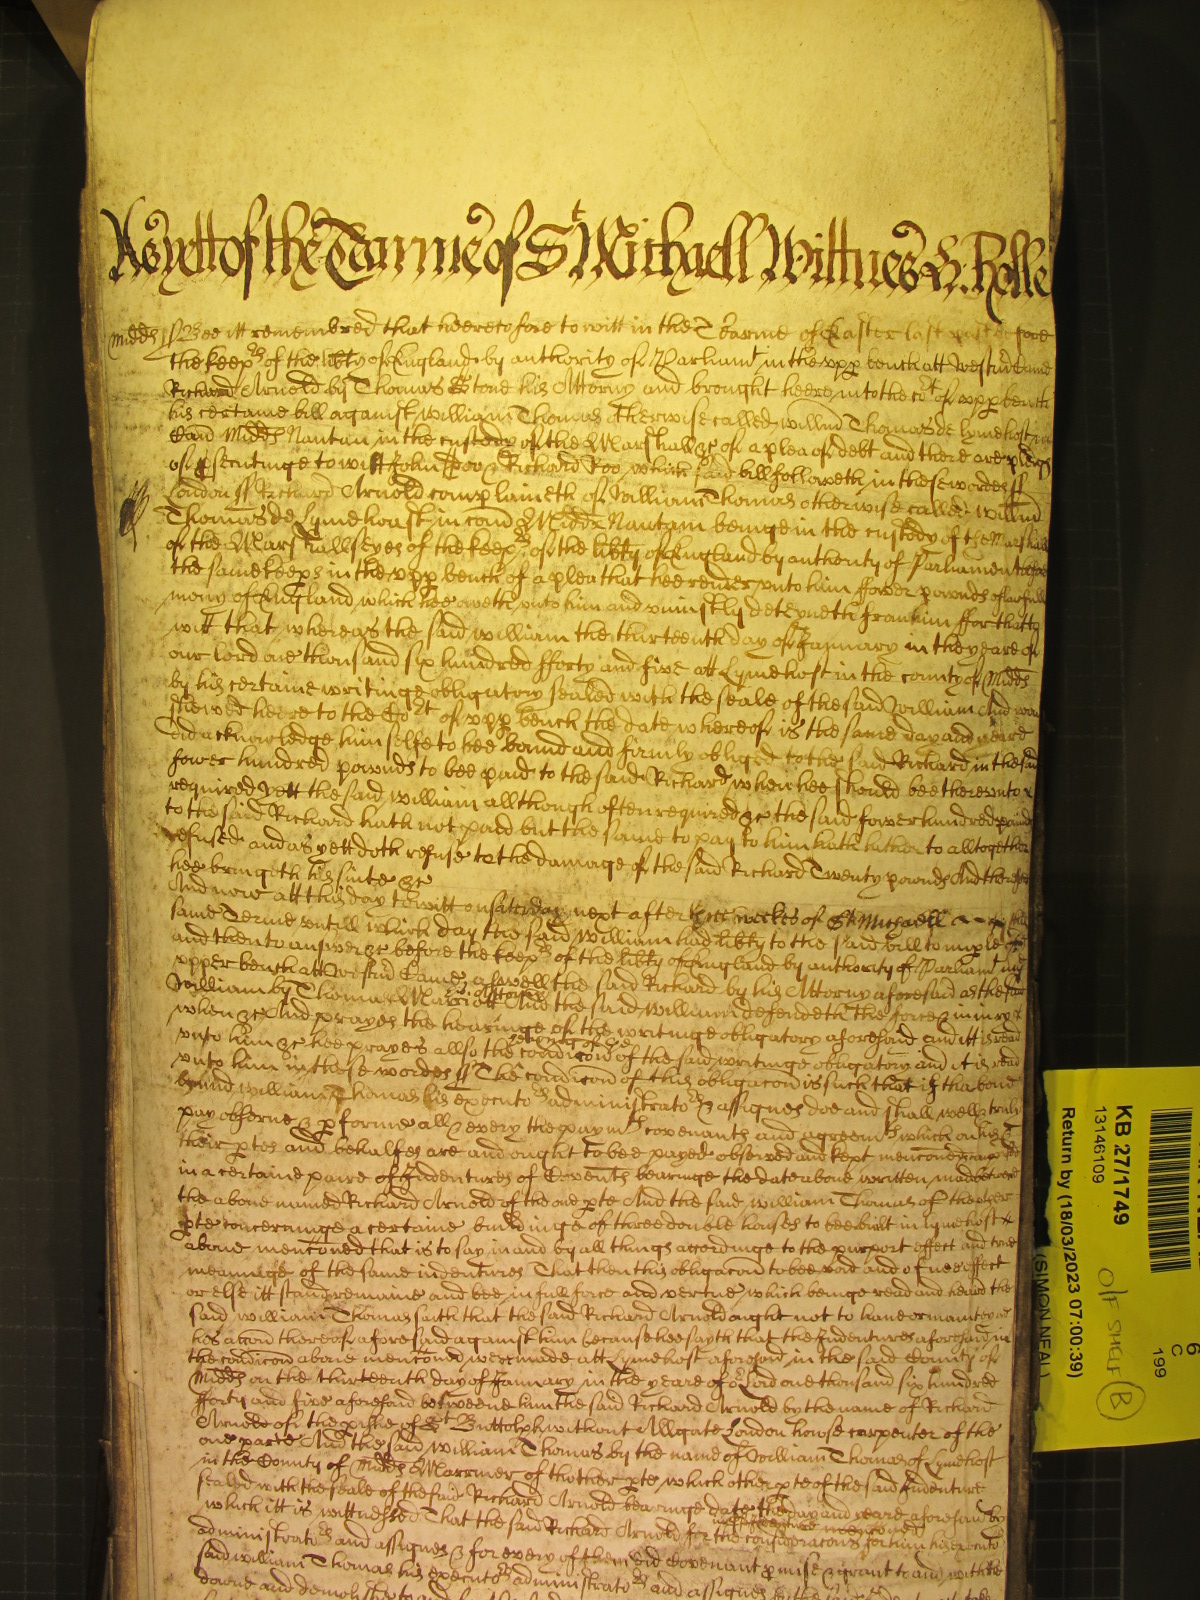 As yett of the Tearme of St Michaell Wittnes H: Rolle
Midds ss Bee itt remembred that heeretofore to witt in the Tearme of Easter last past before
the keeprs of the libty of England by authority of Parliamt in the upp bench att Westm Came
Richard Arnold by Thomas Stone his Attorny and brought heere into the Crt of upp bench
his certaine bill against William Thomas otherwise called Willm Thomas de Lymehost in
Com Midds Nautam in the custody of the Marshall &c of a plea of debt and there are pledgs
of psecutinge to witt John Doo & Richard Roo which said bill followeth in these wordes ss
London ss Richard Arnold complaineth of William Thomas otherwise called Willm
Thomas de Lymehost in Com Midds Nautam beinge in the custody of the Marshall
of the Marshallseyes of the keeprs of the libty of England by authority of Parliament before
the same keeprs in the upp bench of a plea that hee render unto him ffower hundred powndes of lawfull
mony of England which hee oweth unto him and uniustly deteyneth from him ffor that to
witt that whereas the said William the thirteenth day of January in the yeare of
our lord one thousand six hundred fforty and five att Lymehost in the county of Midds
by his certaine writinge obligatory sealed with the seale of the said William And now
shewed heere to the Cort of upp bench the date whereof is the same day and yeare
did acknowledge him selfe to bee bound and firmly obliged to the said Richard in the said
fower hundred pownds to bee paid to the said Richard when hee should bee thereunto
required yett the said William allthough often required &c the said fower hundred pownds
to the said Richard hath not paid but the same to pay to him hath hitherto alltogether
refused and as yett doth refuse to the damage of the said Richard Twenty pownds And therefore
hee bringeth his suite &c
And now att this day to witt on Saterday next after three weekes of St Michaell this
same Terme untill which day the said William had libty to the said bill to imple
and then to answer &c before the keeprs of the libty of England by authority of Parliamt in the
upper bench att Westm Came aswell the said Richard by his Attorny aforesaid as the said
William by Thomas Marriett his Attorny And the said William defendeth the force & iniury
when &c And prayes the hearinge of the writinge obligatory aforesaid and itt is read
unto him &c hee prayes allso the hearing of the condicon of the said writinge obligatory and it is read
unto him in these wordes ss The condicon of this obligacon is such that if the above
bound William Thomas his executors administrators & assignes doe and shall well & truly
pay observe & pforme all & every the paymts covenants and agreemts which on his &
their ptes and behalfes are and ought to bee payed observed and kept menconed
in a certaine paire of Indentures of Covents bearinge the date above written made betweene
the above named Richard Arnold of the one pte And the said William Thomas of the other
pte concerninge a certaine buildinge of three double houses to bee built in Lymehost
above menconed that is to say in and by all things accordinge to the purport effect and true
meaninge of the same indentures That then this obligacon to bee void and of none effect
or else itt stand remaine and bee in full force and vertue which beinge read and heard the
said William Thomas saith that the said Richard Arnold ought not to have or maintaine
his accon thereof aforesaid against him because hee sayth that the Indentures aforesaid in
the condicon above menconed were made att Lymehost aforesaid in the said County of
Midds on the thirteenth day of January in the yeare of or Lord one thousand six hundred
fforty and five aforesaid betweene him the said Richard Arnold by the name of Richard
Arnold of the pishe of St Buttolph without Allgate London howse carpenter of the
one parte And the said William Thomas by the name of William Thomas of Lymehost
in the County of Midds Marriner of thother pte which other pte of the said Indenture
sealed with the seale of the said Richard Arnold bearinge date the day and yeare aforesaid by
which itt is wittnessed That the said Richard Arnold for the consideracons in the Indenture menconed for him his executors
administrators and assignes & for every of them did Covenant pmise & grant to and with the
said William Thomas his executors administrators and assignes
downe and demolish
KB 27/1749
13146109
Return by (18/03/2023 07:00:39)
(SIMON NEAL)
O/F SHELF (B)
6
C
199